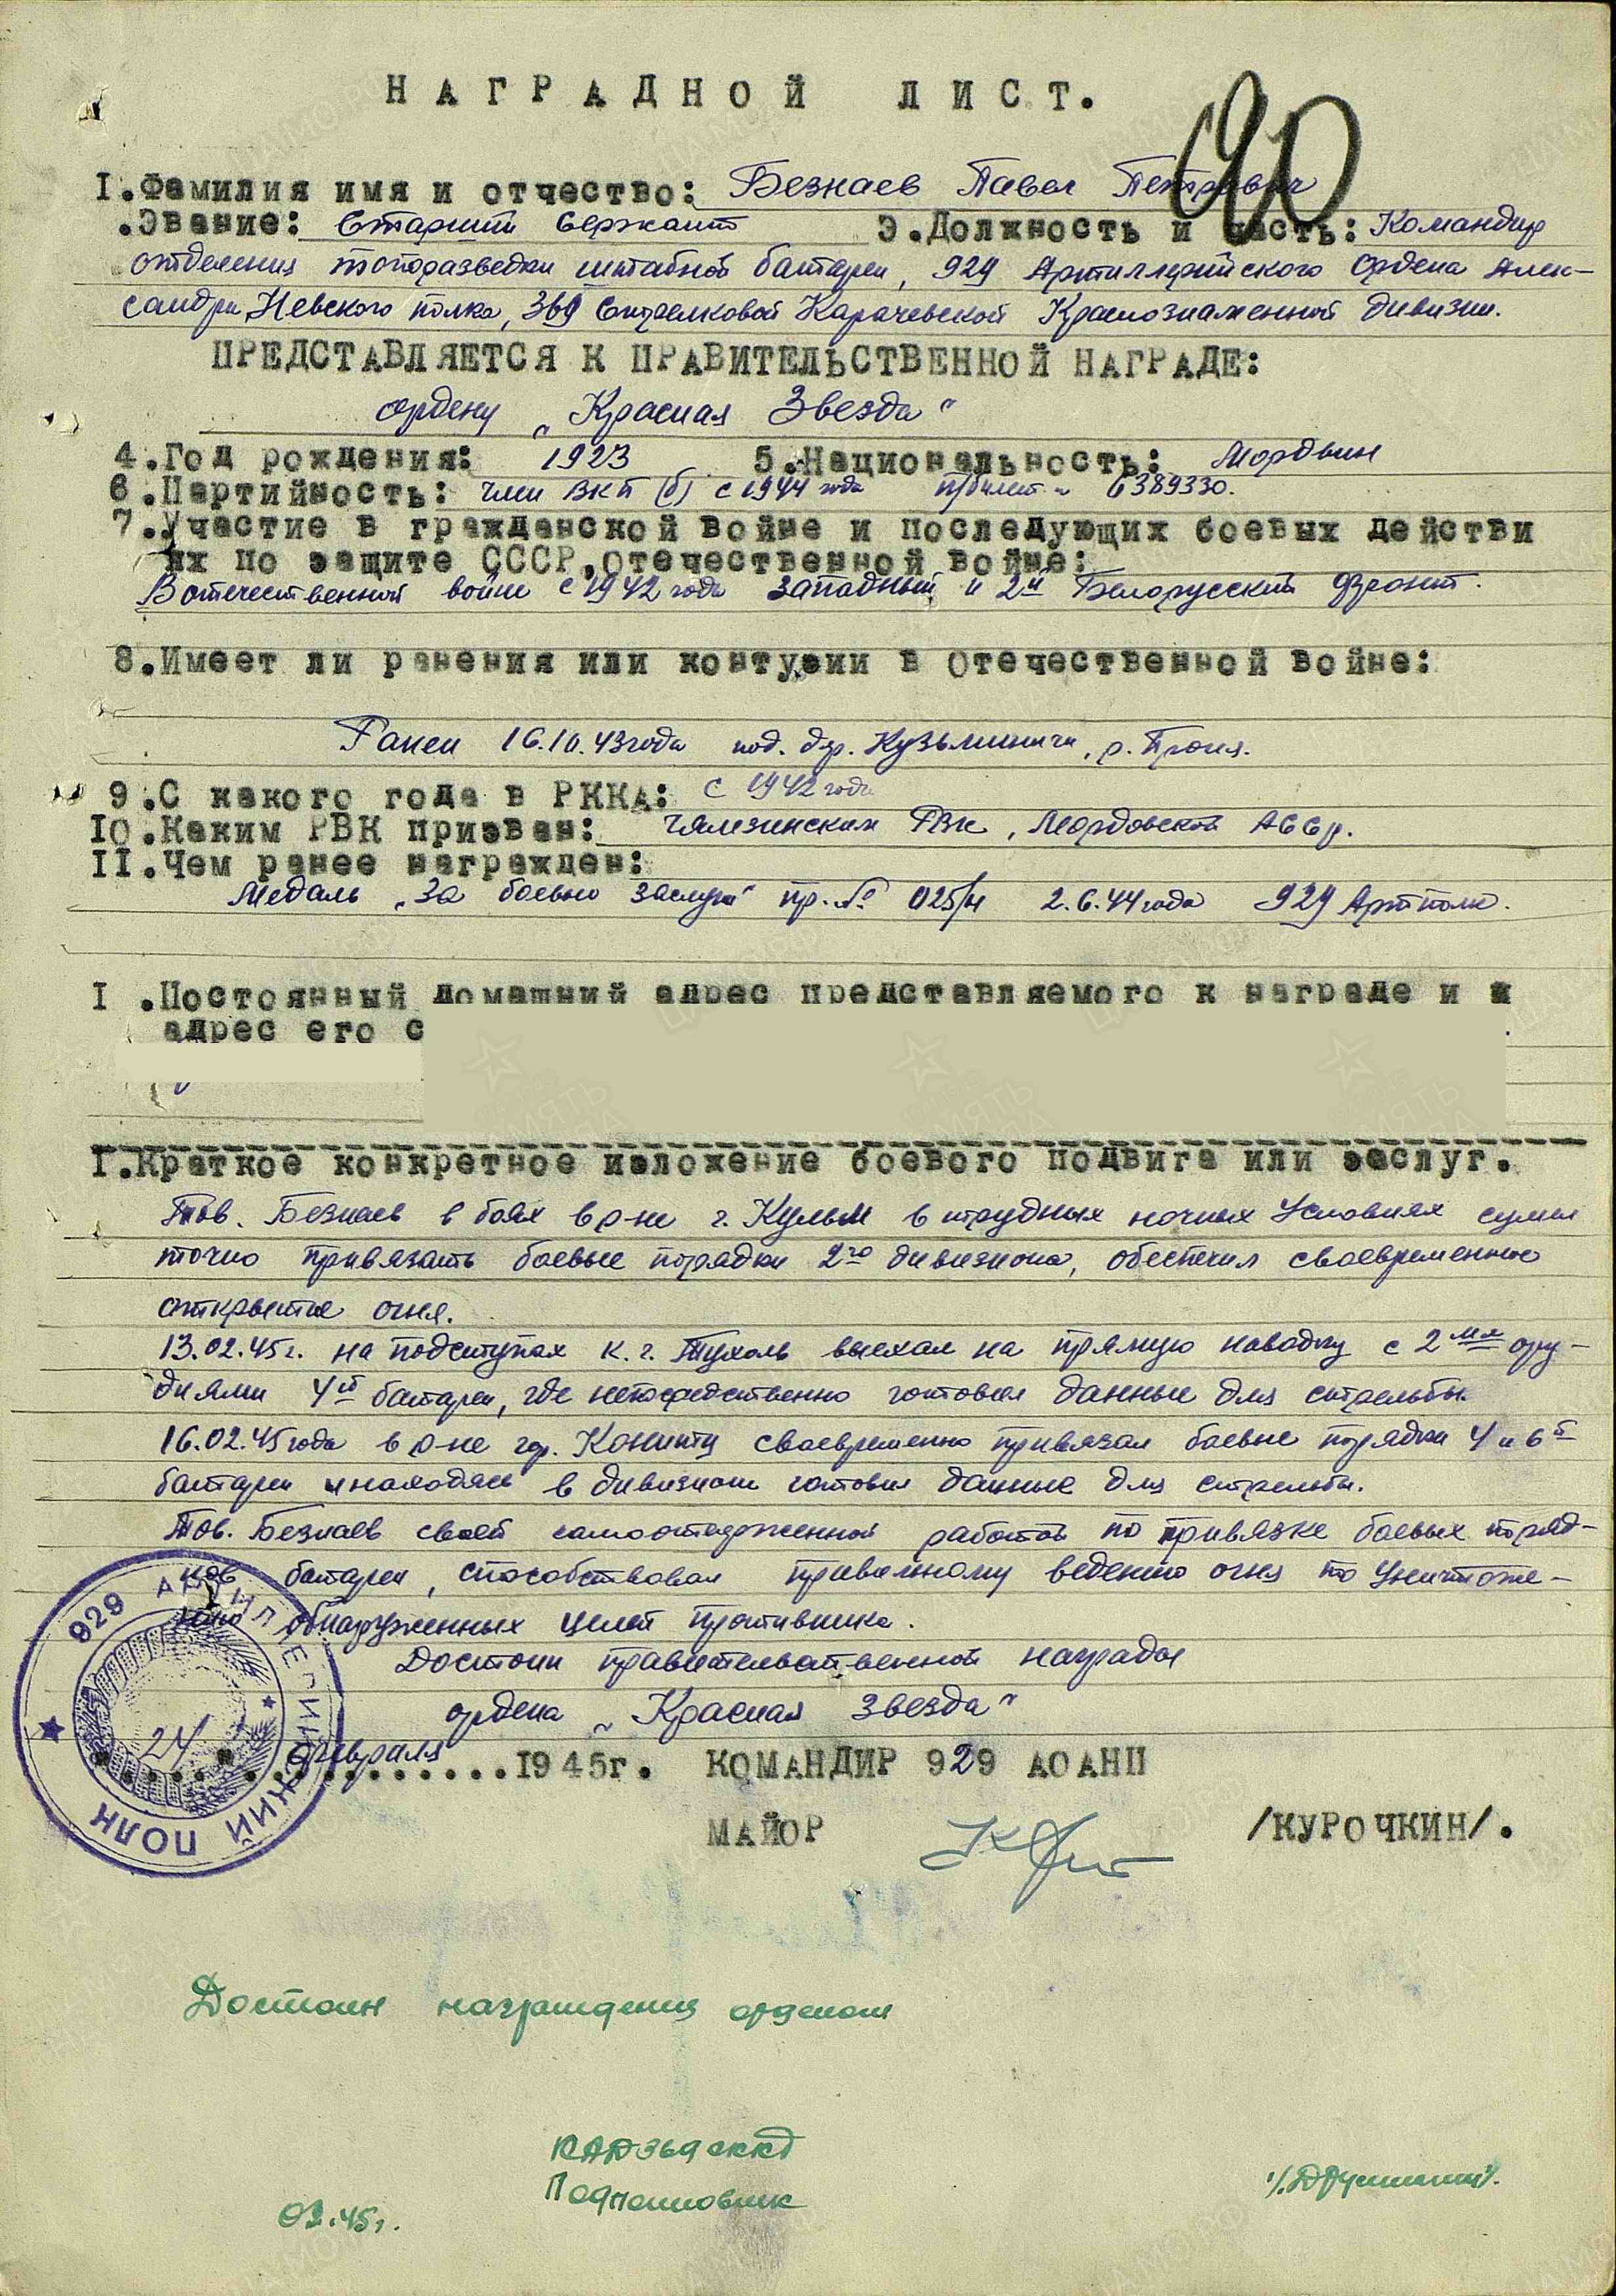 НАГРАДНОЙ ЛИСТ.
90
I.Фамилия имя и отчество: Безнаев Павел Петрович
.Звание: Старший сержант З.Должность и часть: Командир
отделения топоразведки штабной батареи, 929 Артиллерийского Ордена Алек-
сандра Невского полка, 369 Стрелковой Карачевской Краснознаменной дивизии.
ПРЕДСТАВЛЯЕТСЯ К ПРАВИТЕЛЬСТВЕННОЙ НАГРАДЕ:
ордену „Красная Звезда"
4.Год рождения: 1923 5.Национальность: Мордвин
6.Партийность: член ВКП(б) с 1944 года п/билет - 6389330.
7.Участие в гражданской войне и последующих боевых действи
ях по защите СССР,отечественной войне:
В отечественной войне с 1942 года Западный и 2й Белорусский фронт.
8.Имеет ли ранения или контузии в Отечественной войне:
Ранен 16.10.43 года под. дер. Кузьминичи, р. Проня.
9.С какого года в РККА: с 1942 года
IO.Каким РВК призван: Чамзинским РВК, Мордовской АССР.
II.Чем ранее награжден:
Медаль „За боевые заслуги" пр. № 025/н 2.6.44 года 929 Артполк.
I .Постоянный домашний адрес представляемого к награде и
адрес его с
I.Краткое конкретное изложение боевого подвига или заслуг.
Тов. Безнаев в боях в р-не г. Кульм в трудных ночных условиях сумел
точно привязать боевые порядки 2го дивизиона, обеспечил своевременное
открытие огня.
13.02.45г. на подступах к. г. Тухоль выехал на прямую наводку с 2мя ору-
диями 4й батареи, где непосредственно готовил данные для стрельбы.
16.02.45 года в р-не гор. Конитц своевременно привязал боевые порядки 4 и 6й
батареи и находясь в дивизионе готовил данные для стрельбы.
Тов. Безнаев своей самоотверженной работой по привязке боевых поряд-
ков батареи, способствовал правильному ведению огня по уничтоже-
нию обнаруженных целей противника.
Достоин правительственной награды
ордена „Красная Звезда"
929 АРТИЛЛЕРИЙСКИЙ ПОЛК
"24" февраля 1945г. КОМАНДИР 929 АОАНП
МАЙОР /КУРОЧКИН/.
Достоин награждения орденом
КАД 369 сккд
Подполковник
02.45г.